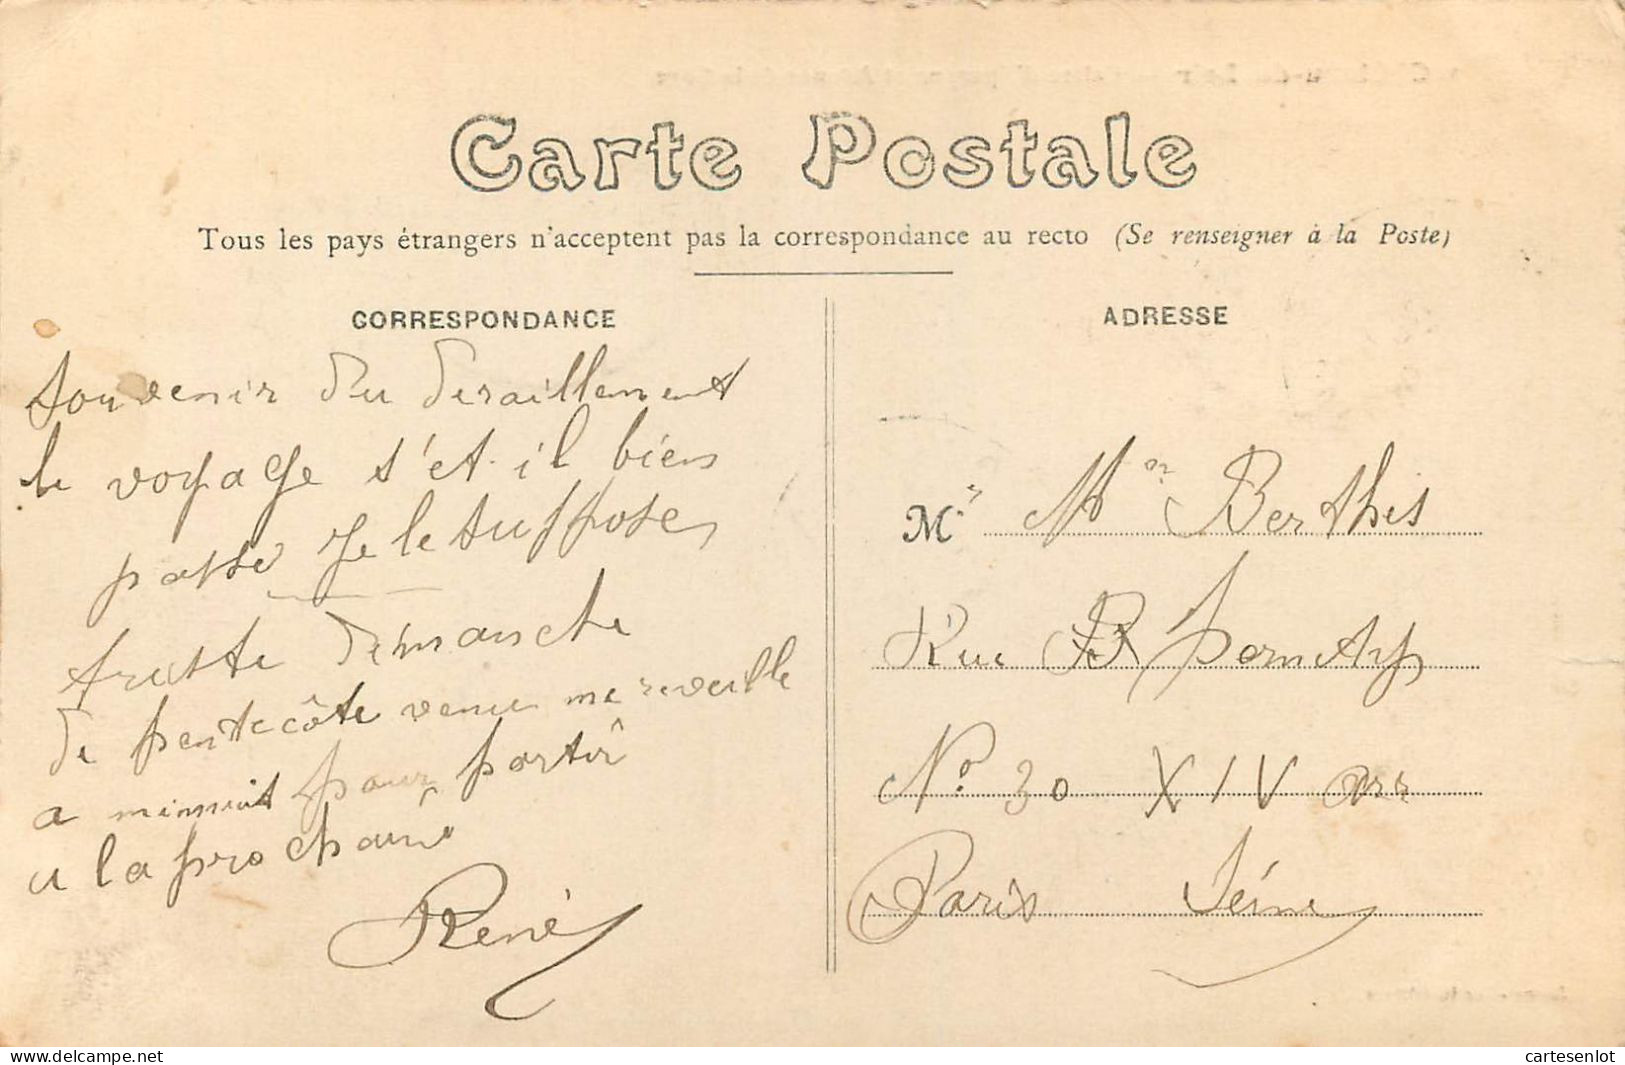 Carte Postale
Tous les pays étrangers n'acceptent pas la correspondance au recto (Se renseigner à la Poste)
CORRESPONDANCE
Souvenir du deraillement
le voyage s'et-il bien
passé je le suppose
triste dimanche
de pentecôte venu me reveille
a minuit pour partir
a la prochaine
René
ADRESSE
M Mr Berthis
Rue
No 30 XIV arr
Paris Séine
www.delcampe.net
cartesenlot